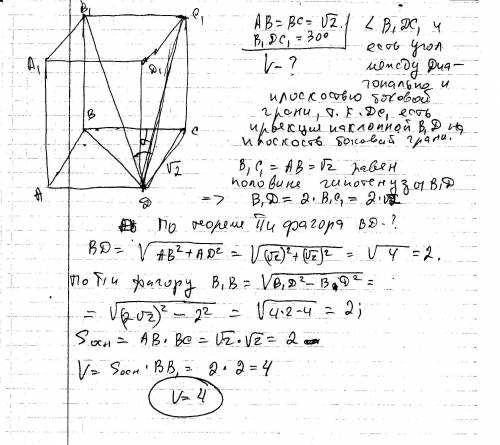 B₁
C₁
A₁
D₁
B
C
A
D
√2
AB = BC = √2.
B₁DC₁ = 30°
V - ?
∠ B₁DC₁ и
есть угол
между диа-
гональю и
плоскостью боковой
грани, т. к. DC₁ есть
проекция наклонной B₁D на
плоскость боковой грани.
B₁C₁ = AB = √2 равен
половине гипотенузы B₁D
=> B₁D = 2·B₁C₁ = 2·√2
По теореме Пифагора BD - ?
BD = √AB² + AD² = √(√2)² + (√2)² = √4 = 2.
По Пифагору B₁B = √B₁D² - BD² =
= √(2√2)² - 2² = √4·2-4 = 2;
Sосн = AB · BC = √2 · √2 = 2
V = Sосн · BB₁ = 2 · 2 = 4
V = 4